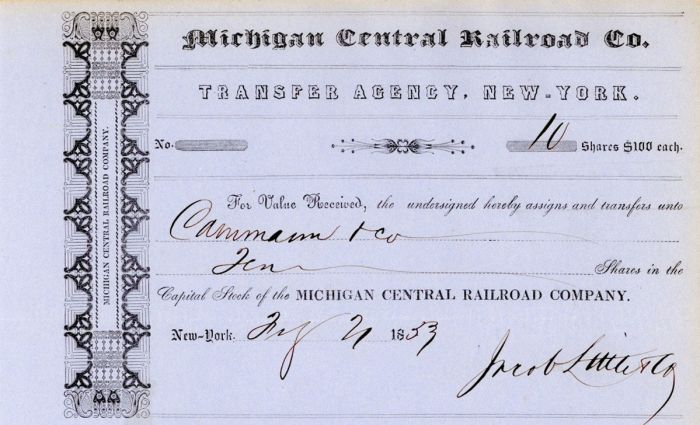 Michigan Central Railroad Co.
TRANSFER AGENCY, NEW-YORK.
No. 10 Shares $100 each.
For Value Received, the undersigned hereby assigns and transfers unto
Cammann & Co
Ten Shares in the
Capital Stock of the MICHIGAN CENTRAL RAILROAD COMPANY.
New-York. 1853
Jacob Little & Co
MICHIGAN CENTRAL RAILROAD COMPANY.